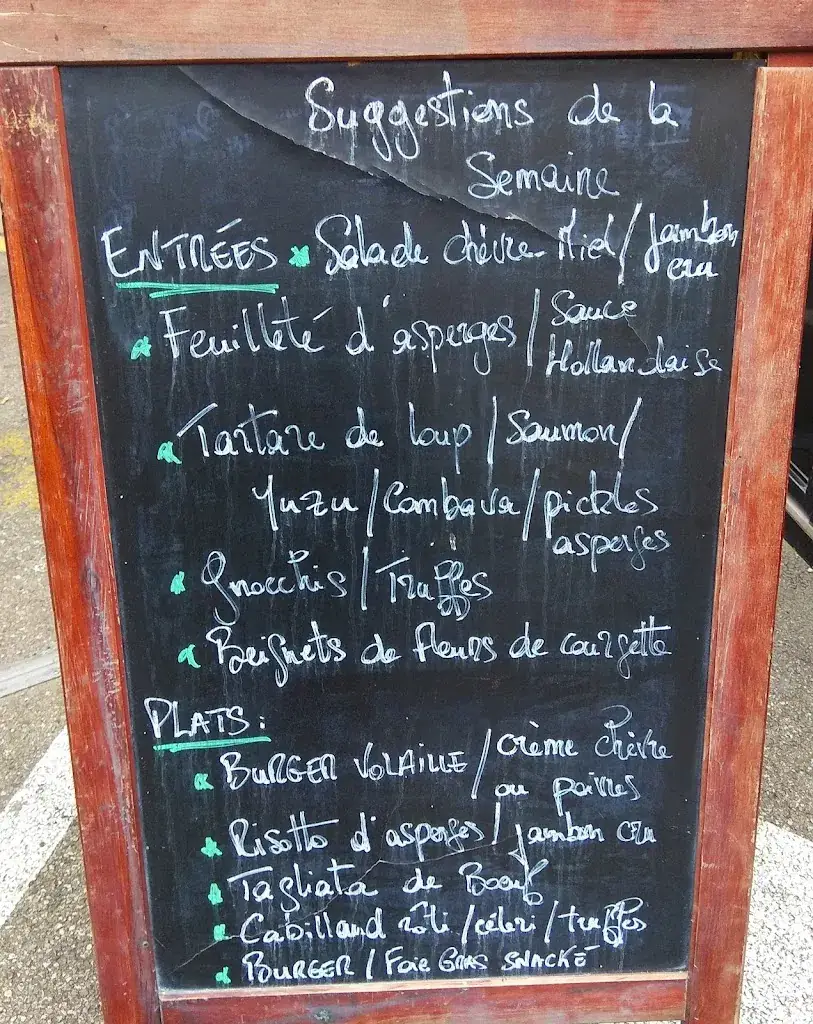 Suggestions de la
Semaine
ENTRÉES * Salade chèvre-Miel/Jambon
cru
* Feuilleté d'asperges/Sauce
Hollandaise
* Tartare de loup/Saumon/
Yuzu/Combava/pickles
asperges
* Gnocchis/Truffes
* Beignets de fleurs de courgette
PLATS:
* BURGER VOLAILLE/crème chèvre
ou poivres
* Risotto d'asperges/jambon cru
* Tagliata de Boeuf
* Cabillaud rôti/céleri/truffes
* BURGER/FOIE GRAS SNACKÉ